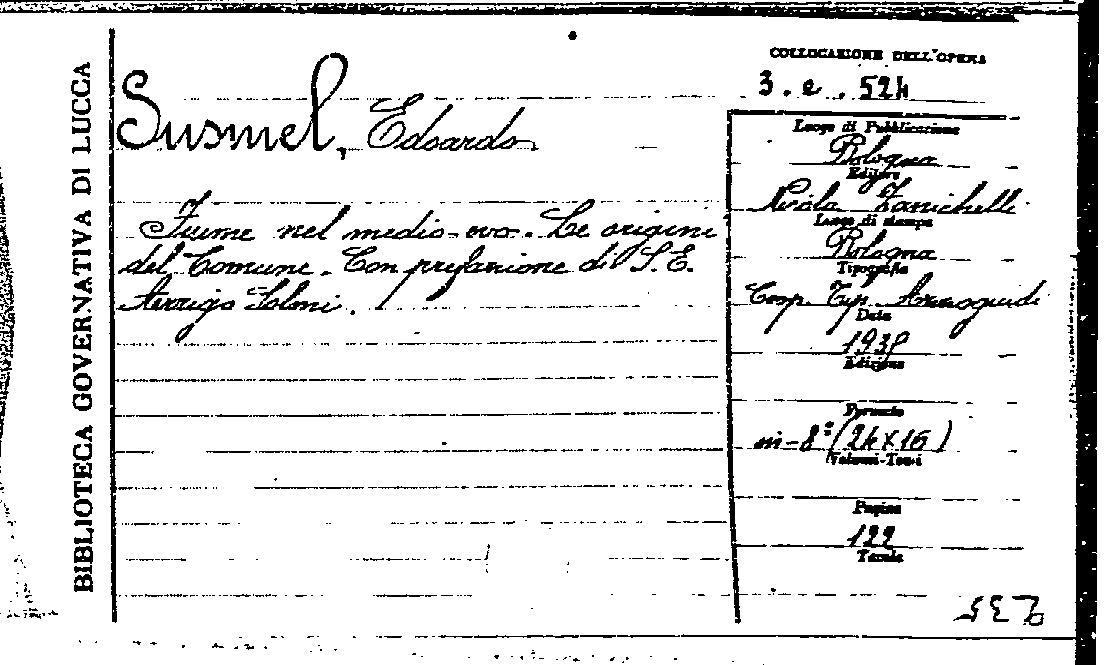 BIBLIOTECA GOVERNATIVA DI LUCCA
Susmel, Edoardo
Fiume nel medio-evo. Le origini
del Comune. Con prefazione di S.E.
Arrigo Solmi.
COLLOCAZIONE DELL'OPERA
3. e. 524
Luogo di Pubblicazione
Bologna
Editore
Nicola Zanichelli
Luogo di stampa
Bologna
Tipografia
Coop. Tip. Azzoguidi
Data
Edizione
Formato
in-8° (24x16)
Volumi-Tomi
Pagine
122
Tavole